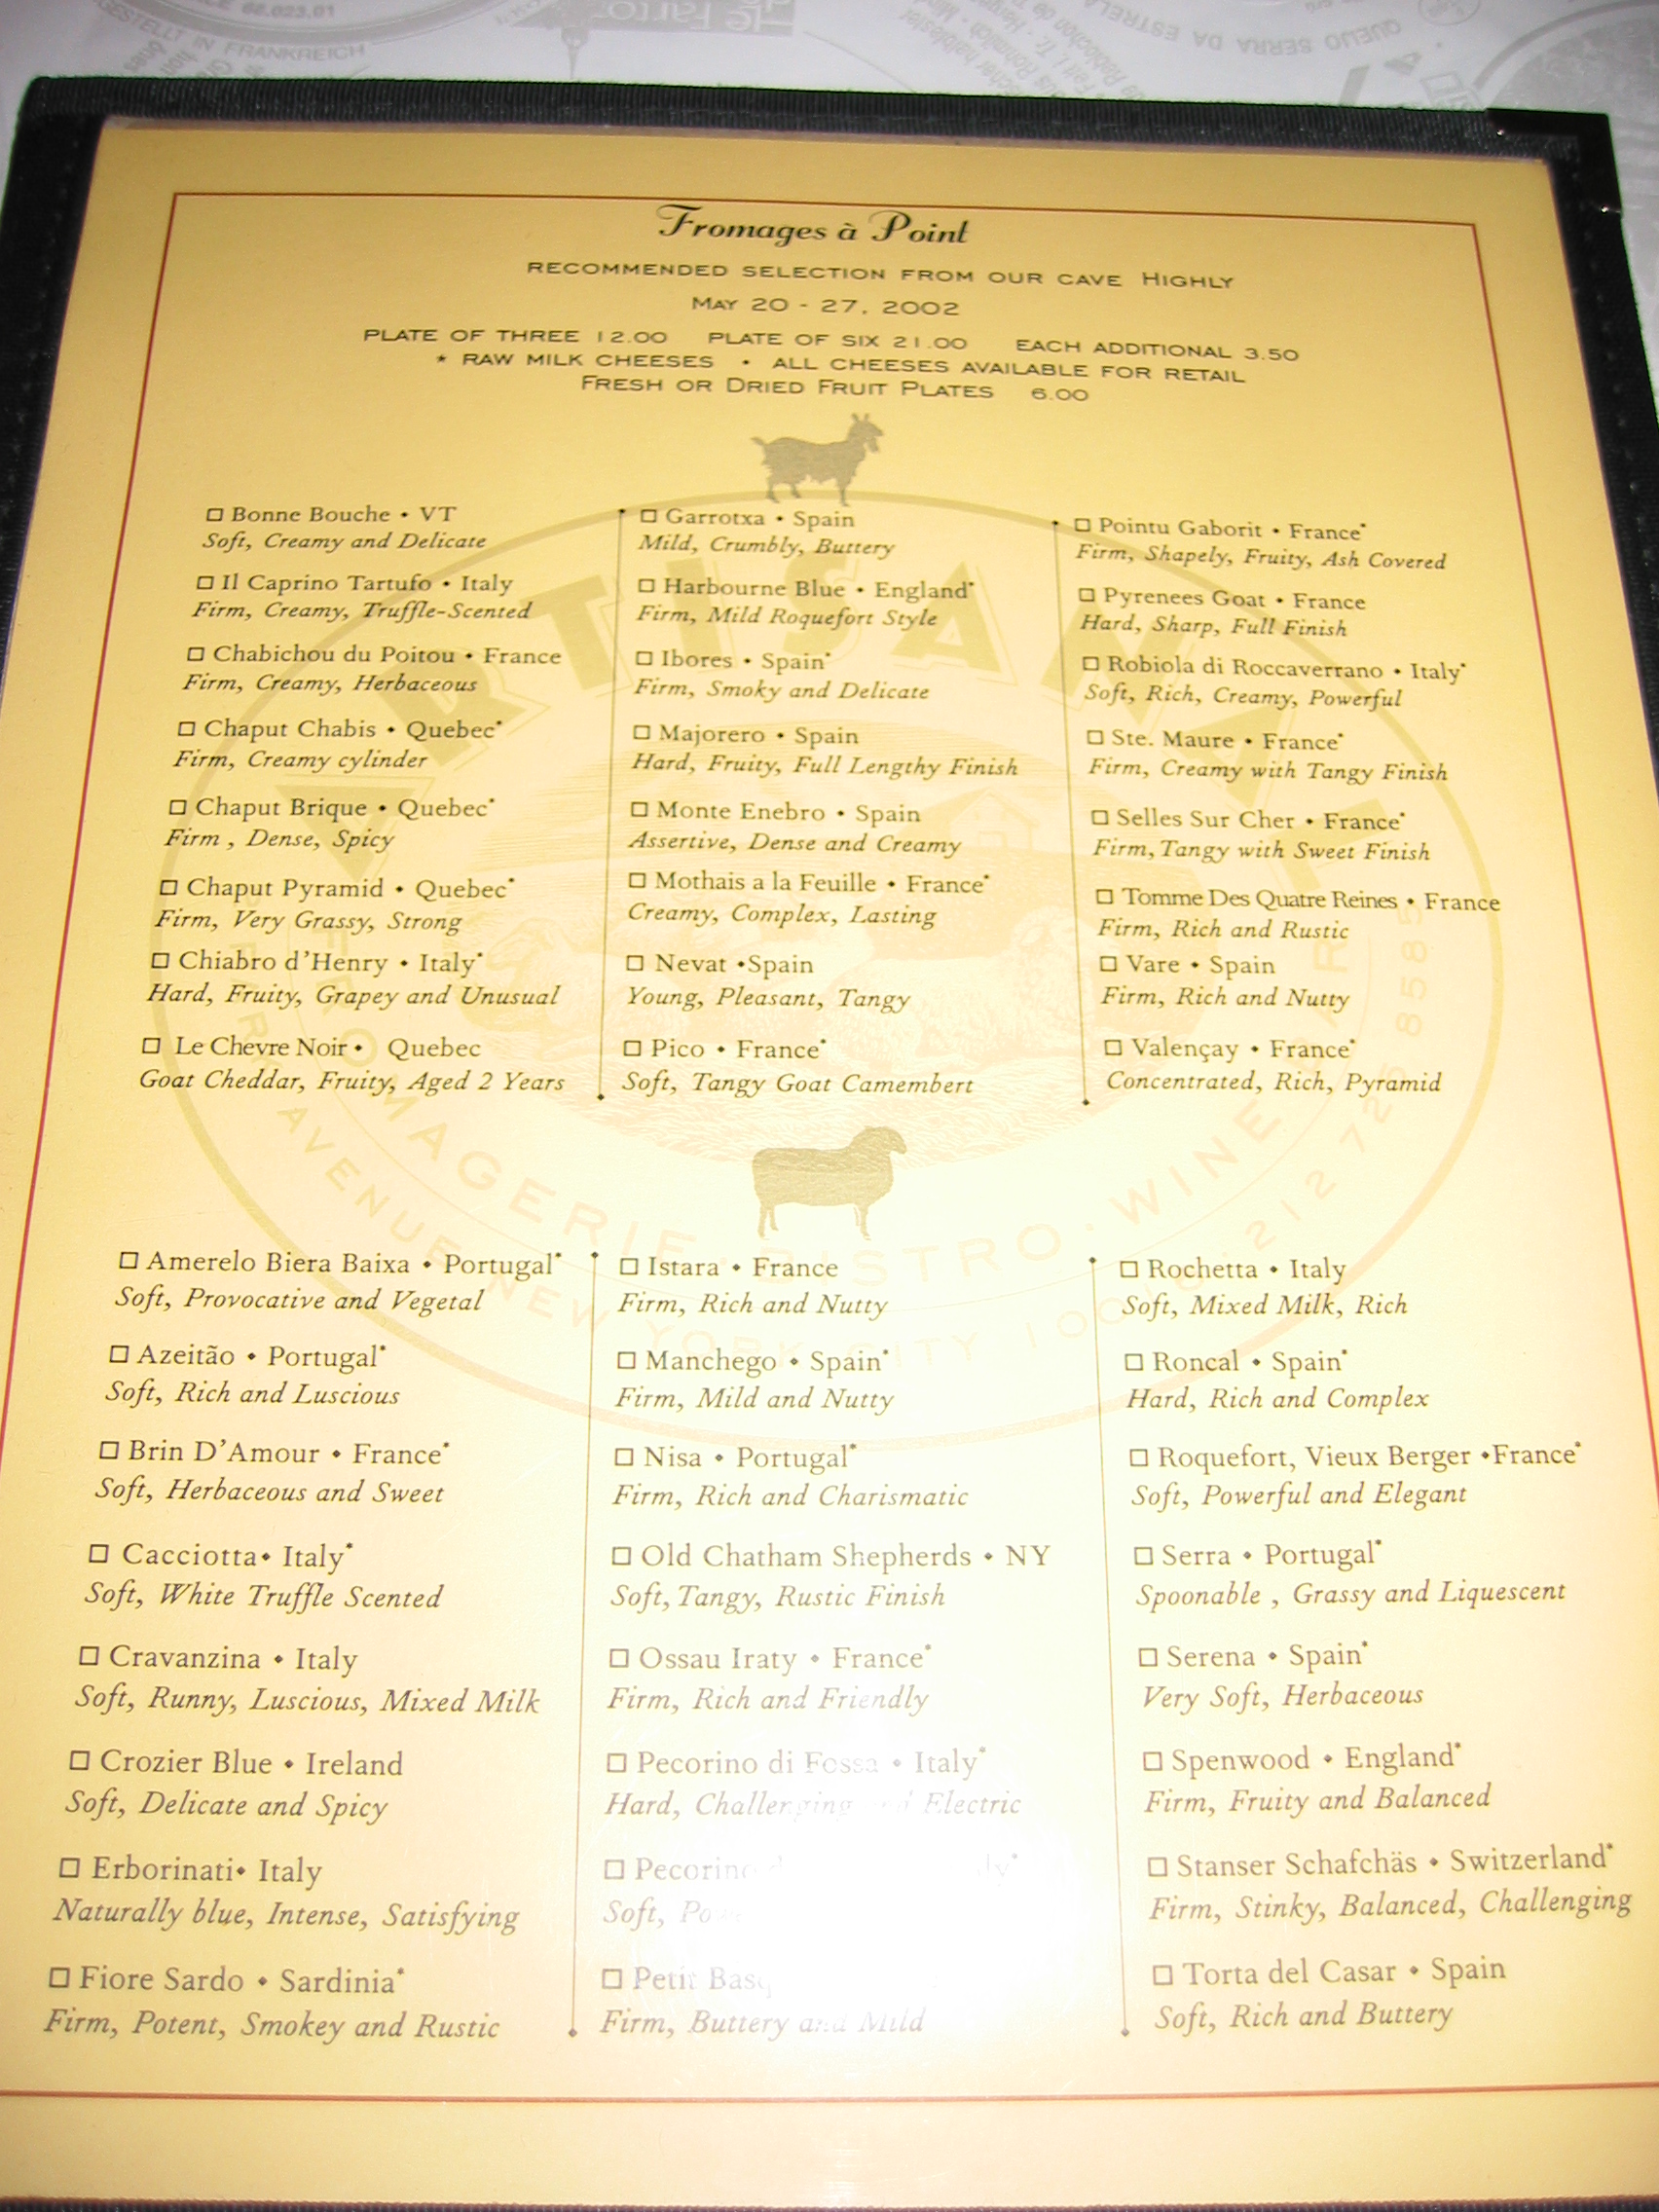 GESTELLT IN FRANKREICH
QUEIJO SERRA DA ESTRELA
Fromages à Point
RECOMMENDED SELECTION FROM OUR CAVE HIGHLY
MAY 20 - 27, 2002
PLATE OF THREE 12.00 PLATE OF SIX 21.00 EACH ADDITIONAL 3.50
* RAW MILK CHEESES • ALL CHEESES AVAILABLE FOR RETAIL
FRESH OR DRIED FRUIT PLATES 6.00
ARTISANAL
FROMAGERIE BISTRO · WINE
AVENUE NEW YORK CITY
Bonne Bouche • VT
Soft, Creamy and Delicate
Il Caprino Tartufo • Italy
Firm, Creamy, Truffle-Scented
Chabichou du Poitou • France
Firm, Creamy, Herbaceous
Chaput Chabis • Quebec*
Firm, Creamy cylinder
Chaput Brique • Quebec*
Firm , Dense, Spicy
Chaput Pyramid • Quebec*
Firm, Very Grassy, Strong
Chiabro d'Henry • Italy*
Hard, Fruity, Grapey and Unusual
Le Chevre Noir • Quebec
Goat Cheddar, Fruity, Aged 2 Years
Garrotxa • Spain
Mild, Crumbly, Buttery
Harbourne Blue • England*
Firm, Mild Roquefort Style
Ibores • Spain*
Firm, Smoky and Delicate
Majorero • Spain
Hard, Fruity, Full Lengthy Finish
Monte Enebro • Spain
Assertive, Dense and Creamy
Mothais a la Feuille • France*
Creamy, Complex, Lasting
Nevat •Spain
Young, Pleasant, Tangy
Pico • France*
Soft, Tangy Goat Camembert
Pointu Gaborit • France*
Firm, Shapely, Fruity, Ash Covered
Pyrenees Goat • France
Hard, Sharp, Full Finish
Robiola di Roccaverrano • Italy*
Soft, Rich, Creamy, Powerful
Ste. Maure • France*
Firm, Creamy with Tangy Finish
Selles Sur Cher • France*
Firm, Tangy with Sweet Finish
Tomme Des Quatre Reines • France
Firm, Rich and Rustic
Vare • Spain
Firm, Rich and Nutty
Valençay • France*
Concentrated, Rich, Pyramid
Amerelo Biera Baixa • Portugal*
Soft, Provocative and Vegetal
Azeitão • Portugal*
Soft, Rich and Luscious
Brin D'Amour • France*
Soft, Herbaceous and Sweet
Cacciotta• Italy*
Soft, White Truffle Scented
Cravanzina • Italy
Soft, Runny, Luscious, Mixed Milk
Crozier Blue • Ireland
Soft, Delicate and Spicy
Erborinati• Italy
Naturally blue, Intense, Satisfying
Fiore Sardo • Sardinia*
Firm, Potent, Smokey and Rustic
Istara • France
Firm, Rich and Nutty
Manchego • Spain*
Firm, Mild and Nutty
Nisa • Portugal*
Firm, Rich and Charismatic
Old Chatham Shepherds • NY
Soft, Tangy, Rustic Finish
Ossau Iraty • France*
Firm, Rich and Friendly
Pecorino di Fossa • Italy*
Hard, Challenging and Electric
Pecorino
Soft,
Petit
Firm, Buttery and Mild
Rochetta • Italy
Soft, Mixed Milk, Rich
Roncal • Spain*
Hard, Rich and Complex
Roquefort, Vieux Berger •France*
Soft, Powerful and Elegant
Serra • Portugal*
Spoonable , Grassy and Liquescent
Serena • Spain*
Very Soft, Herbaceous
Spenwood • England*
Firm, Fruity and Balanced
Stanser Schafchäs • Switzerland*
Firm, Stinky, Balanced, Challenging
Torta del Casar • Spain
Soft, Rich and Buttery